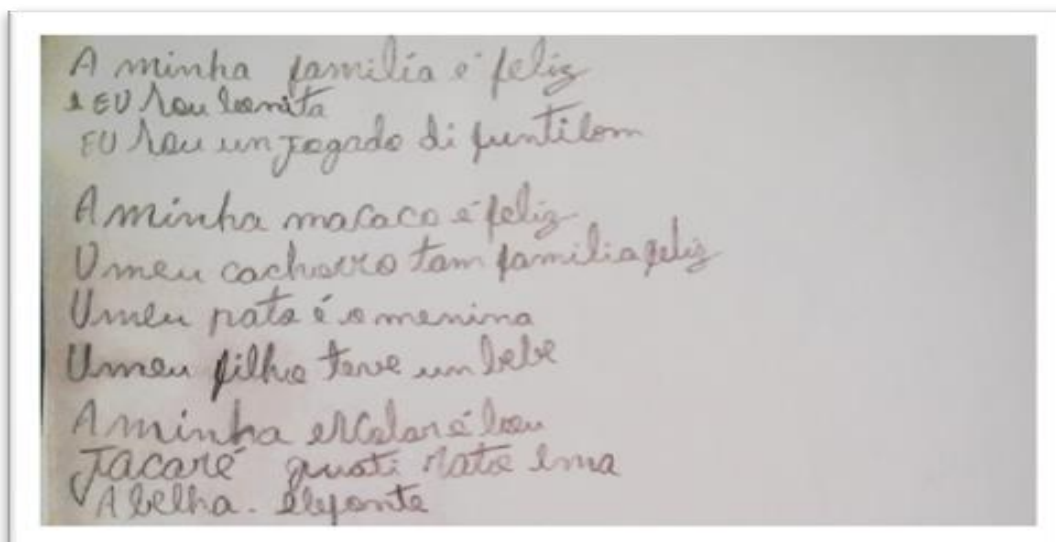 A minha familia é feliz
e EU sou bonita
EU sou un jogado di funtilom
A minha macaco é feliz
U meu cachorro tam familia feliz
U meu pato é o menina
U meu filho teve um bebe
A minha escolar é bou
Jacaré quati rato ema
Abelha. elefante